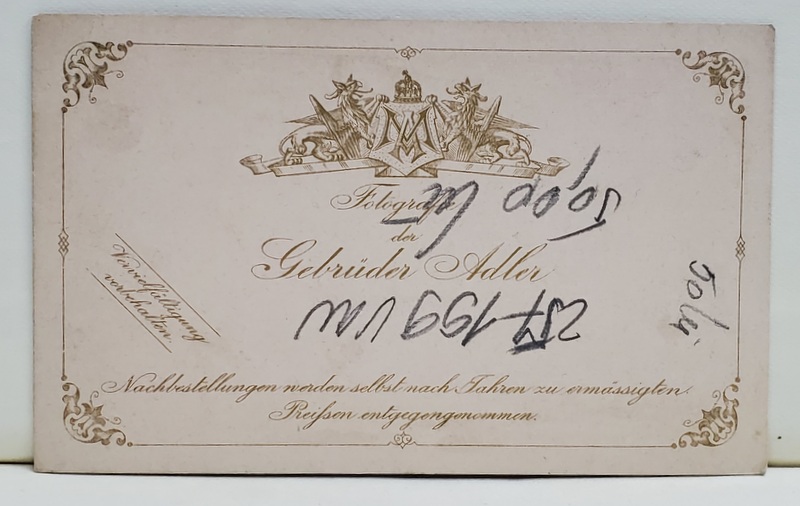 Fotografie
der
Gebrüder Adler
Vervielfältigung
vorbehalten.
Nachbestellungen werden selbst nach Jahren zu ermässigten
Preifsen entgegengenommen.
50,00 lei
50 lei